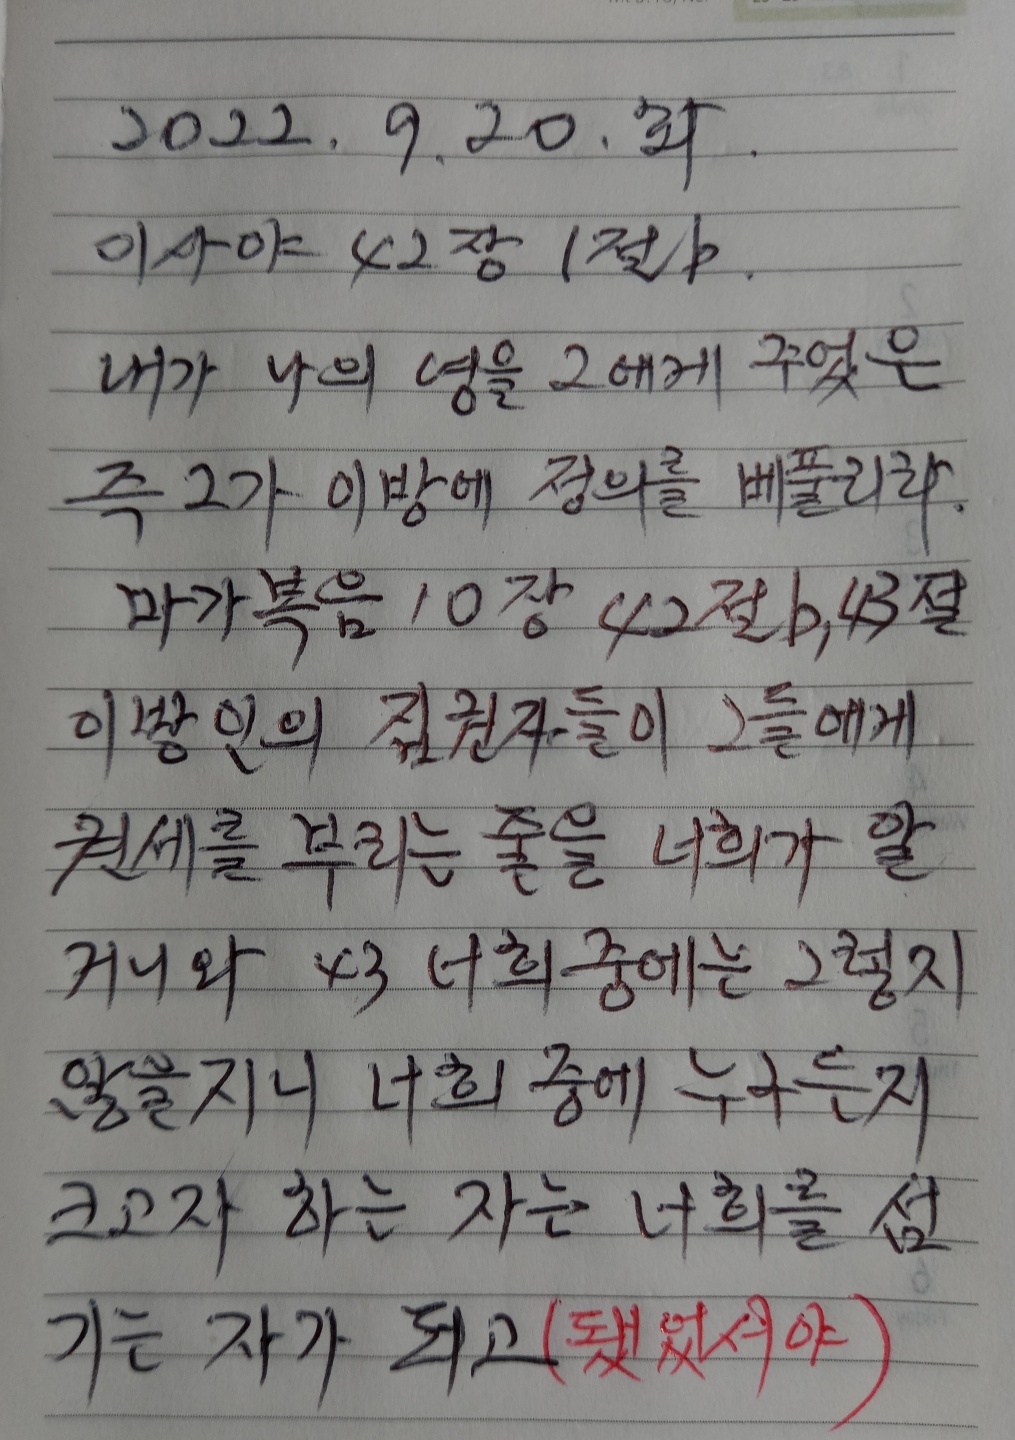 2022. 9. 20. 화.
이사야 42장 1절b.
내가 나의 영을 그에게 주었은
즉 그가 이방에 정의를 베풀리라.
마가복음 10장 42절b, 43절
이방인의 집권자들이 그들에게
권세를 부리는 줄을 너희가 알
거니와 43 너희 중에는 그렇지
않을지니 너희 중에 누구든지
크고자 하는 자는 너희를 섬
기는 자가 되고(됐었서야)